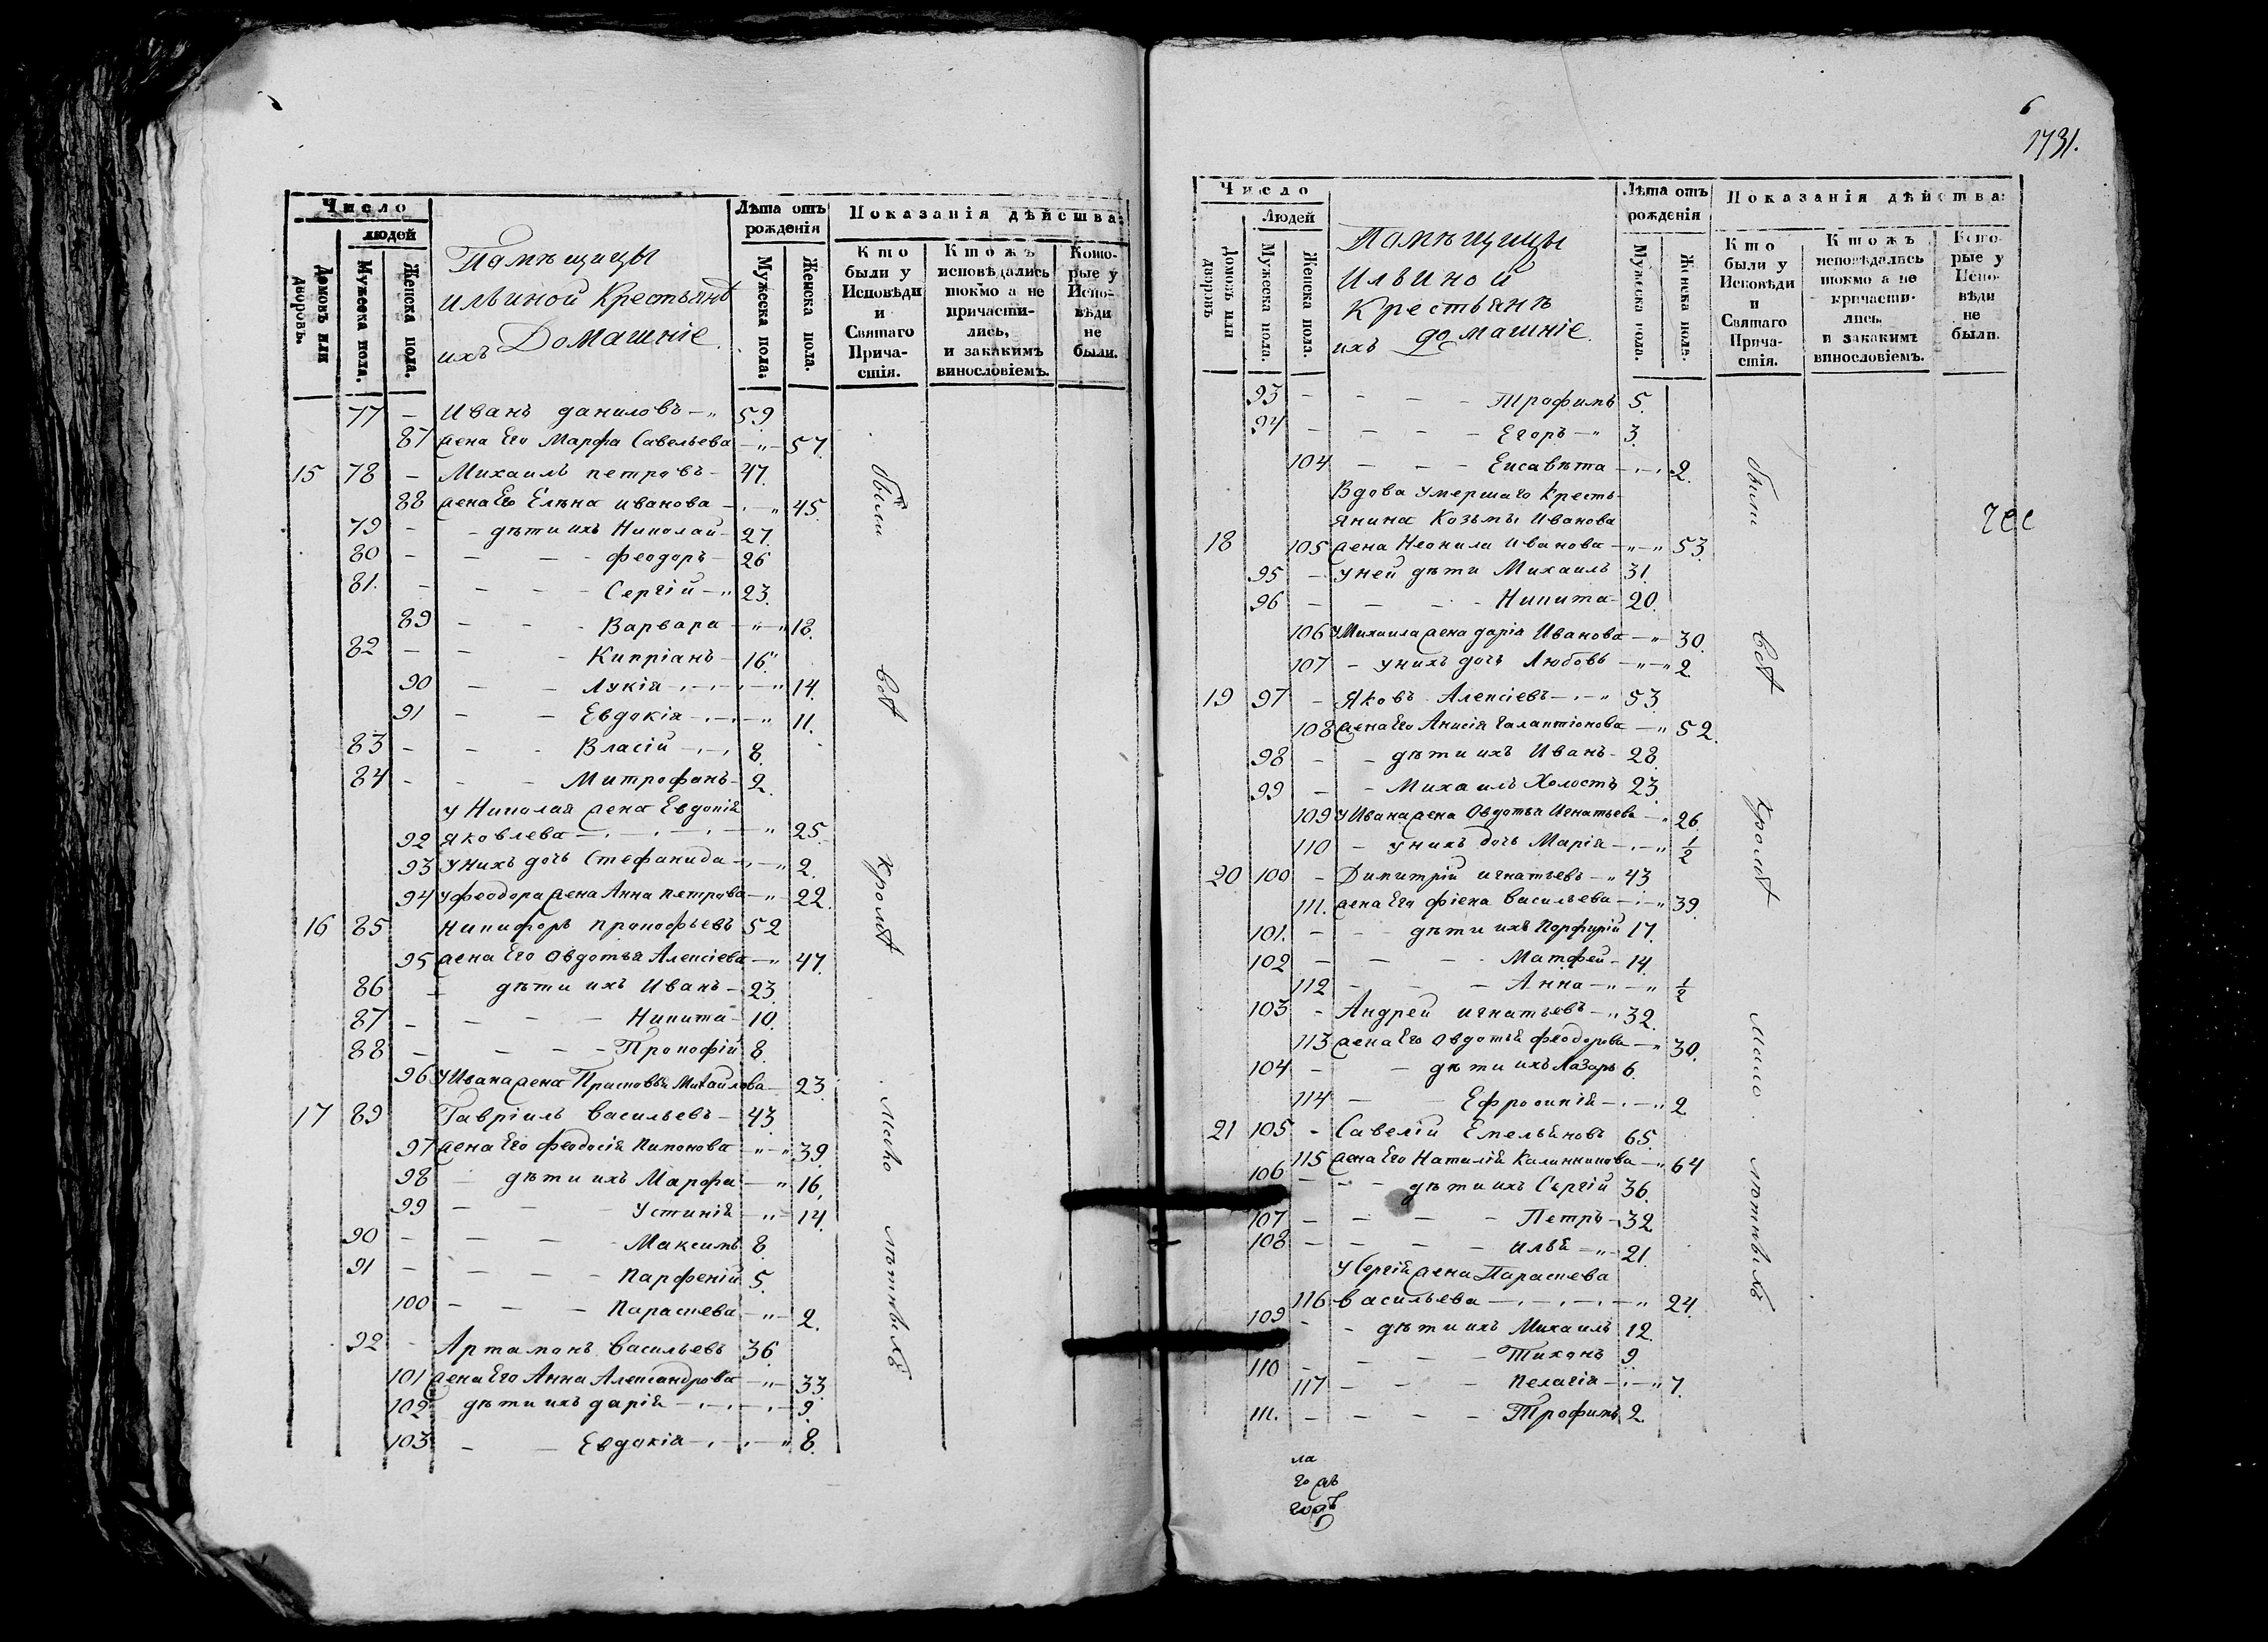 Число
людей
Домовъ или дворовъ.
Мужеска пола.
Женска пола.
Помѣщицы
ильиной Крестьянѣ
ихъ Домашніе.
Лѣта отъ рожденія
Мужеска пола.
Женска пола.
Показанія дѣйства:
Кто были у Исповѣди и Святаго Прича-стія.
Ктожъ исповѣдались токмо а не причасти-лись, и закакимъ винословіемъ.
Кото-рые у Испо-вѣди не были.
77 – Иванъ даниловъ – „ 59
87 жена Его Марфа Савельева – „ – 57.
15 78 – Михаилъ петровъ – 47.
88 жена Его Елѣна иванова – „ 45.
79 – – дѣти ихъ Николай – 27.
80 – – – – феодоръ – 26
81. – – – – Сергій – „ 23.
89 – – – Варвара – „ – „ 18.
82 – – – Кипріанъ – 16.
90 – – Лукія – . – . – „ 14.
91 – – Евдокія – . – . – „ 11.
83 – – – Власій – . – . 8.
84 – – – Митрофанъ – 2.
у Николая жена Евдокія
92 яковлева – . – . – . – „ 25.
93 унихъ дочь Стефанида – . – „ 2.
94 уфеодора жена Анна петрова – „ 22.
16 85 Никифоръ прокофьевъ 52
95 жена Его Овдотья Алексіева – „ 47.
86 – дѣти ихъ Иванъ – 23.
87 – – – – Никита – 10.
88 – – – – Прокофій 8.
96 уИвана жена Прасковья Михайлова – 23.
17 89 Гавріилъ васильевъ – 43.
97 жена Его феодосія Пимонова – „ – „ 39.
98 – дѣти ихъ Марфа – „ 16.
99 – – – Устинія – „ – 14.
90 – – – – Максимъ 8.
91 – – – – парфеній 5.
100 – – – Параскева – „ – 2.
92 – Артамонъ васильевъ 36.
101 жена Его Анна Александрова – „ – 33.
102 дѣти ихъ дарія – . – . – . – 9.
103 – – Евдокія – . – . – „ 8.
были
всѣ
кромѣ
мало
лѣтныхъ
6
1731.
Число
Людей
Домовъ или дворовъ
Мужеска пола.
Женска пола.
Помѣщицы
Ильиной
Крестьянѣ
ихъ домашніе.
Лѣта отъ рожденія
Мужеска пола.
Женска пола.
Показанія дѣйства:
Кто были у Исповѣди и Святаго Прича-стія.
Ктожъ исповѣдались токмо а не причасти-лись, и закакимъ винословіемъ.
Кото-рые у Испо-вѣди не были.
93 – – – – Трофимъ 5.
94 – – – – Егоръ – „ 3.
104 – – – Елисавѣта – . – . 2.
Вдова умершаго Кресть-
янина Козьмы Иванова
18 105 жена Неонила иванова – „ – „ 53.
95 – уней дѣти Михаилъ 31.
96 – – – – Никита – 20.
106 уМихаила жена дарія Иванова – „ 30.
107 – унихъ дочь Любовь – „ – „ 2.
19 97 – яковъ Алексіевъ – . – „ 53.
108 жена Его Анисія Галактіонова – „ 52.
98 – – дѣти ихъ Иванъ – 28.
99 – – Михаилъ Холостъ 23.
109 уИвана жена Овдотья Игнатьева – „ 26.
110 – унихъ дочь Марія – . – „ ½
20 100 – Димитрій игнатьевъ – „ 43
111. жена Его фіена васильева – . – „ 39.
101. – – – дѣти ихъ Порфирій 17.
102 – – – – Матфей – 14.
112 – – – Анна – „ – „ ½
103 – Андрей игнатьевъ – „ 32.
113 жена Его Овдотья феодорова – „ 30.
104 – – дѣти ихъ Лазарь 6.
114 – – Ефросинія – . – „ 2
21 105 – Савелій Емельяновъ 65.
115 жена Его Наталія Калинникова – „ 64
106 – – – дѣти ихъ Сергій 36.
107 – – – – Петръ – 32.
108 – – – – илья – „ – 21.
уСергія жена Параскева
116 васильева – . – . – . – „ 24.
109 – – дѣти ихъ Михаилъ 12.
110 – – – – Тихонъ 9.
117 – – – Пелагія – . – „ 7.
111. – – – – Трофимъ 2.
были
всѣ
кромѣ
мало
лѣтныхъ